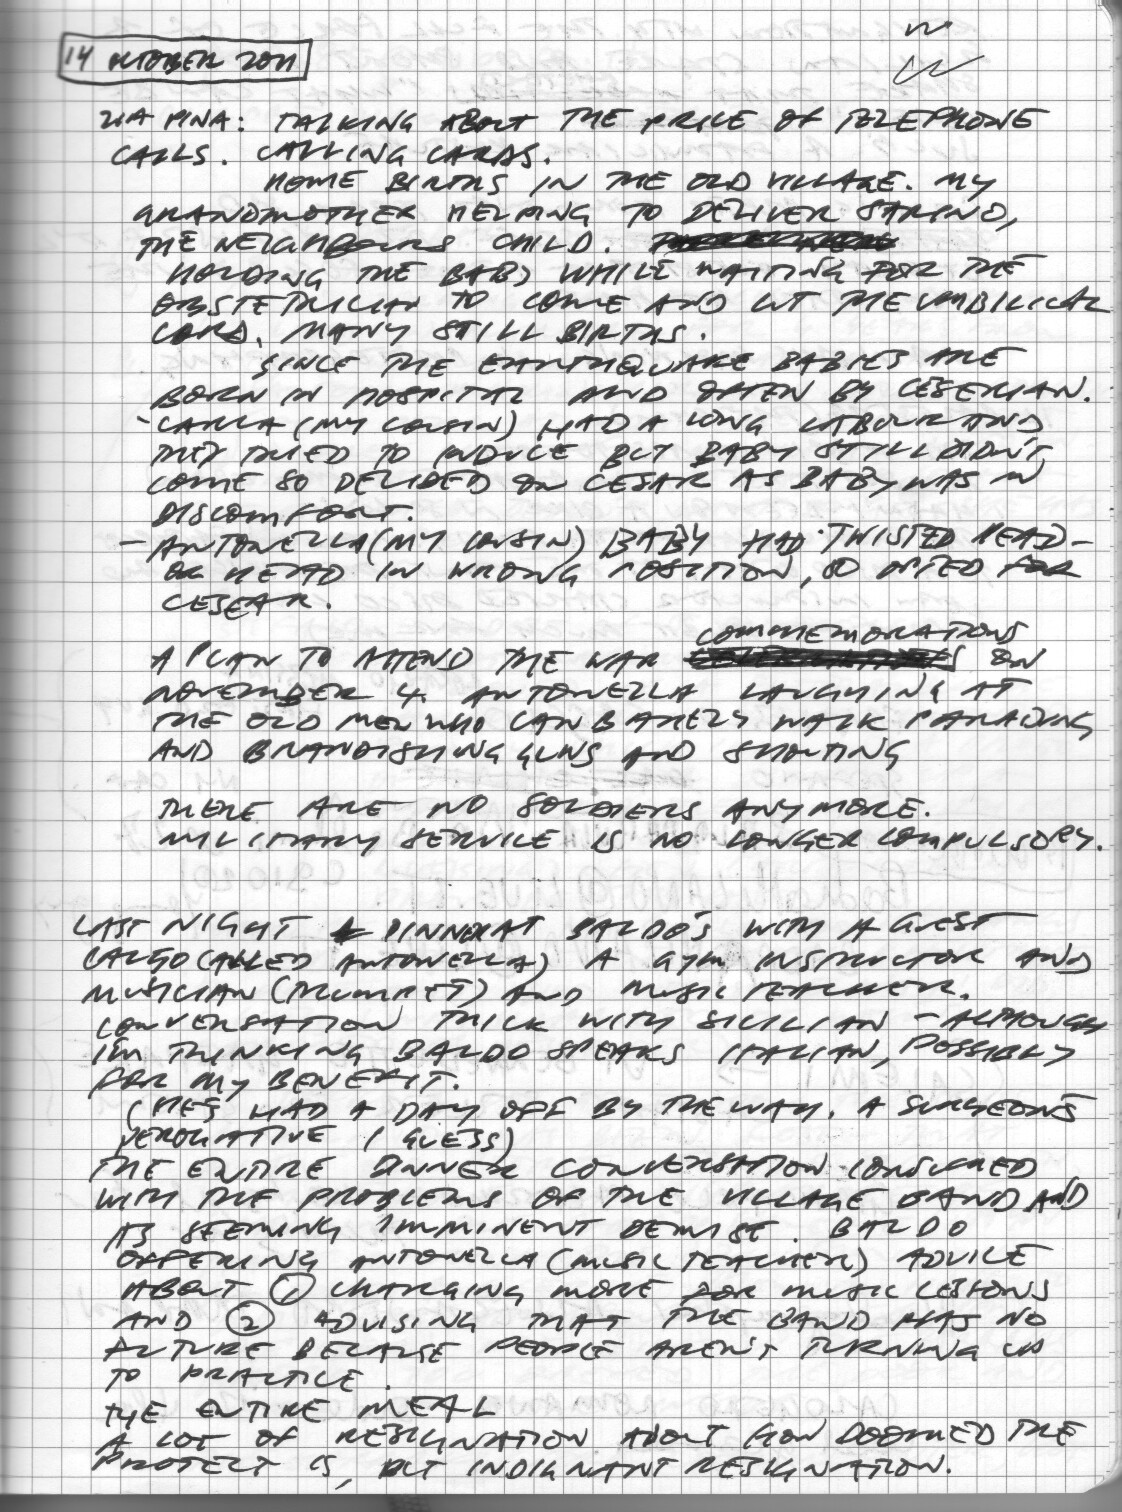 14 OKTOBER 2011
ZIA PINA: TALKING ABOUT THE PRICE OF TELEPHONE
CALLS. CALLING CARDS.
HOME BIRTHS IN THE OLD VILLAGE. MY
GRANDMOTHER HELPING TO DELIVER SARINO,
THE NEIGHBOURS CHILD.
HOLDING THE BABY WHILE WAITING FOR THE
OBSTETRICIAN TO COME AND CUT THE UMBILICAL
CORD. MANY STILL BIRTHS.
SINCE THE EARTHQUAKE BABIES ARE
BORN IN HOSPITAL AND OFTEN BY CESERIAN.
- CARLA (MY COUSIN) HAD A LONG LABOUR AND
THEY TRIED TO INDUCE BUT BABY STILL DIDN'T
COME SO DECIDED ON CESAR AS BABY WAS IN
DISCOMFORT.
- ANTONELLA (MY COUSIN) BABY HAD TWISTED HEAD -
OR HEAD IN WRONG POSITION, SO OPTED FOR
CESEAR.
COMMEMORATIONS
A PLAN TO ATTEND THE WAR ON
NOVEMBER 4. ANTONELLA LAUGHING AT
THE OLD MEN WHO CAN BARELY WALK PARADING
AND BRANDISHING GUNS AND SHOUTING
THERE ARE NO SOLDIERS ANYMORE.
MILITARY SERVICE IS NO LONGER COMPULSORY.
LAST NIGHT DINNER AT BALDO'S WITH A GUEST
(ALSO CALLED ANTONELLA) A GYM INSTRUCTOR AND
MUSICIAN (TRUMPET) AND MUSIC TEACHER.
CONVERSATION THICK WITH SICILIAN - ALTHOUGH
I'M THINKING BALDO SPEAKS ITALIAN, POSSIBLY
FOR MY BENEFIT.
(HE'S HAD A DAY OFF BY THE WAY. A SURGEON'S
PEROGATIVE I GUESS)
THE ENTIRE DINNER CONVERSATION CONSUMED
WITH THE PROBLEMS OF THE VILLAGE BAND AND
ITS SEEMING IMMINENT DEMISE. BALDO
OFFERING ANTONELLA (MUSIC TEACHER) ADVICE
ABOUT 1 CHARGING MORE FOR MUSIC LESSONS
AND 2 ADVISING THAT THE BAND HAS NO
FUTURE BECAUSE PEOPLE AREN'T TURNING UP
TO PRACTICE.
THE ENTIRE MEAL
A LOT OF RESIGNATION ABOUT HOW DOOMED THE
PROJECT IS, BUT INDIGNANT RESIGNATION.